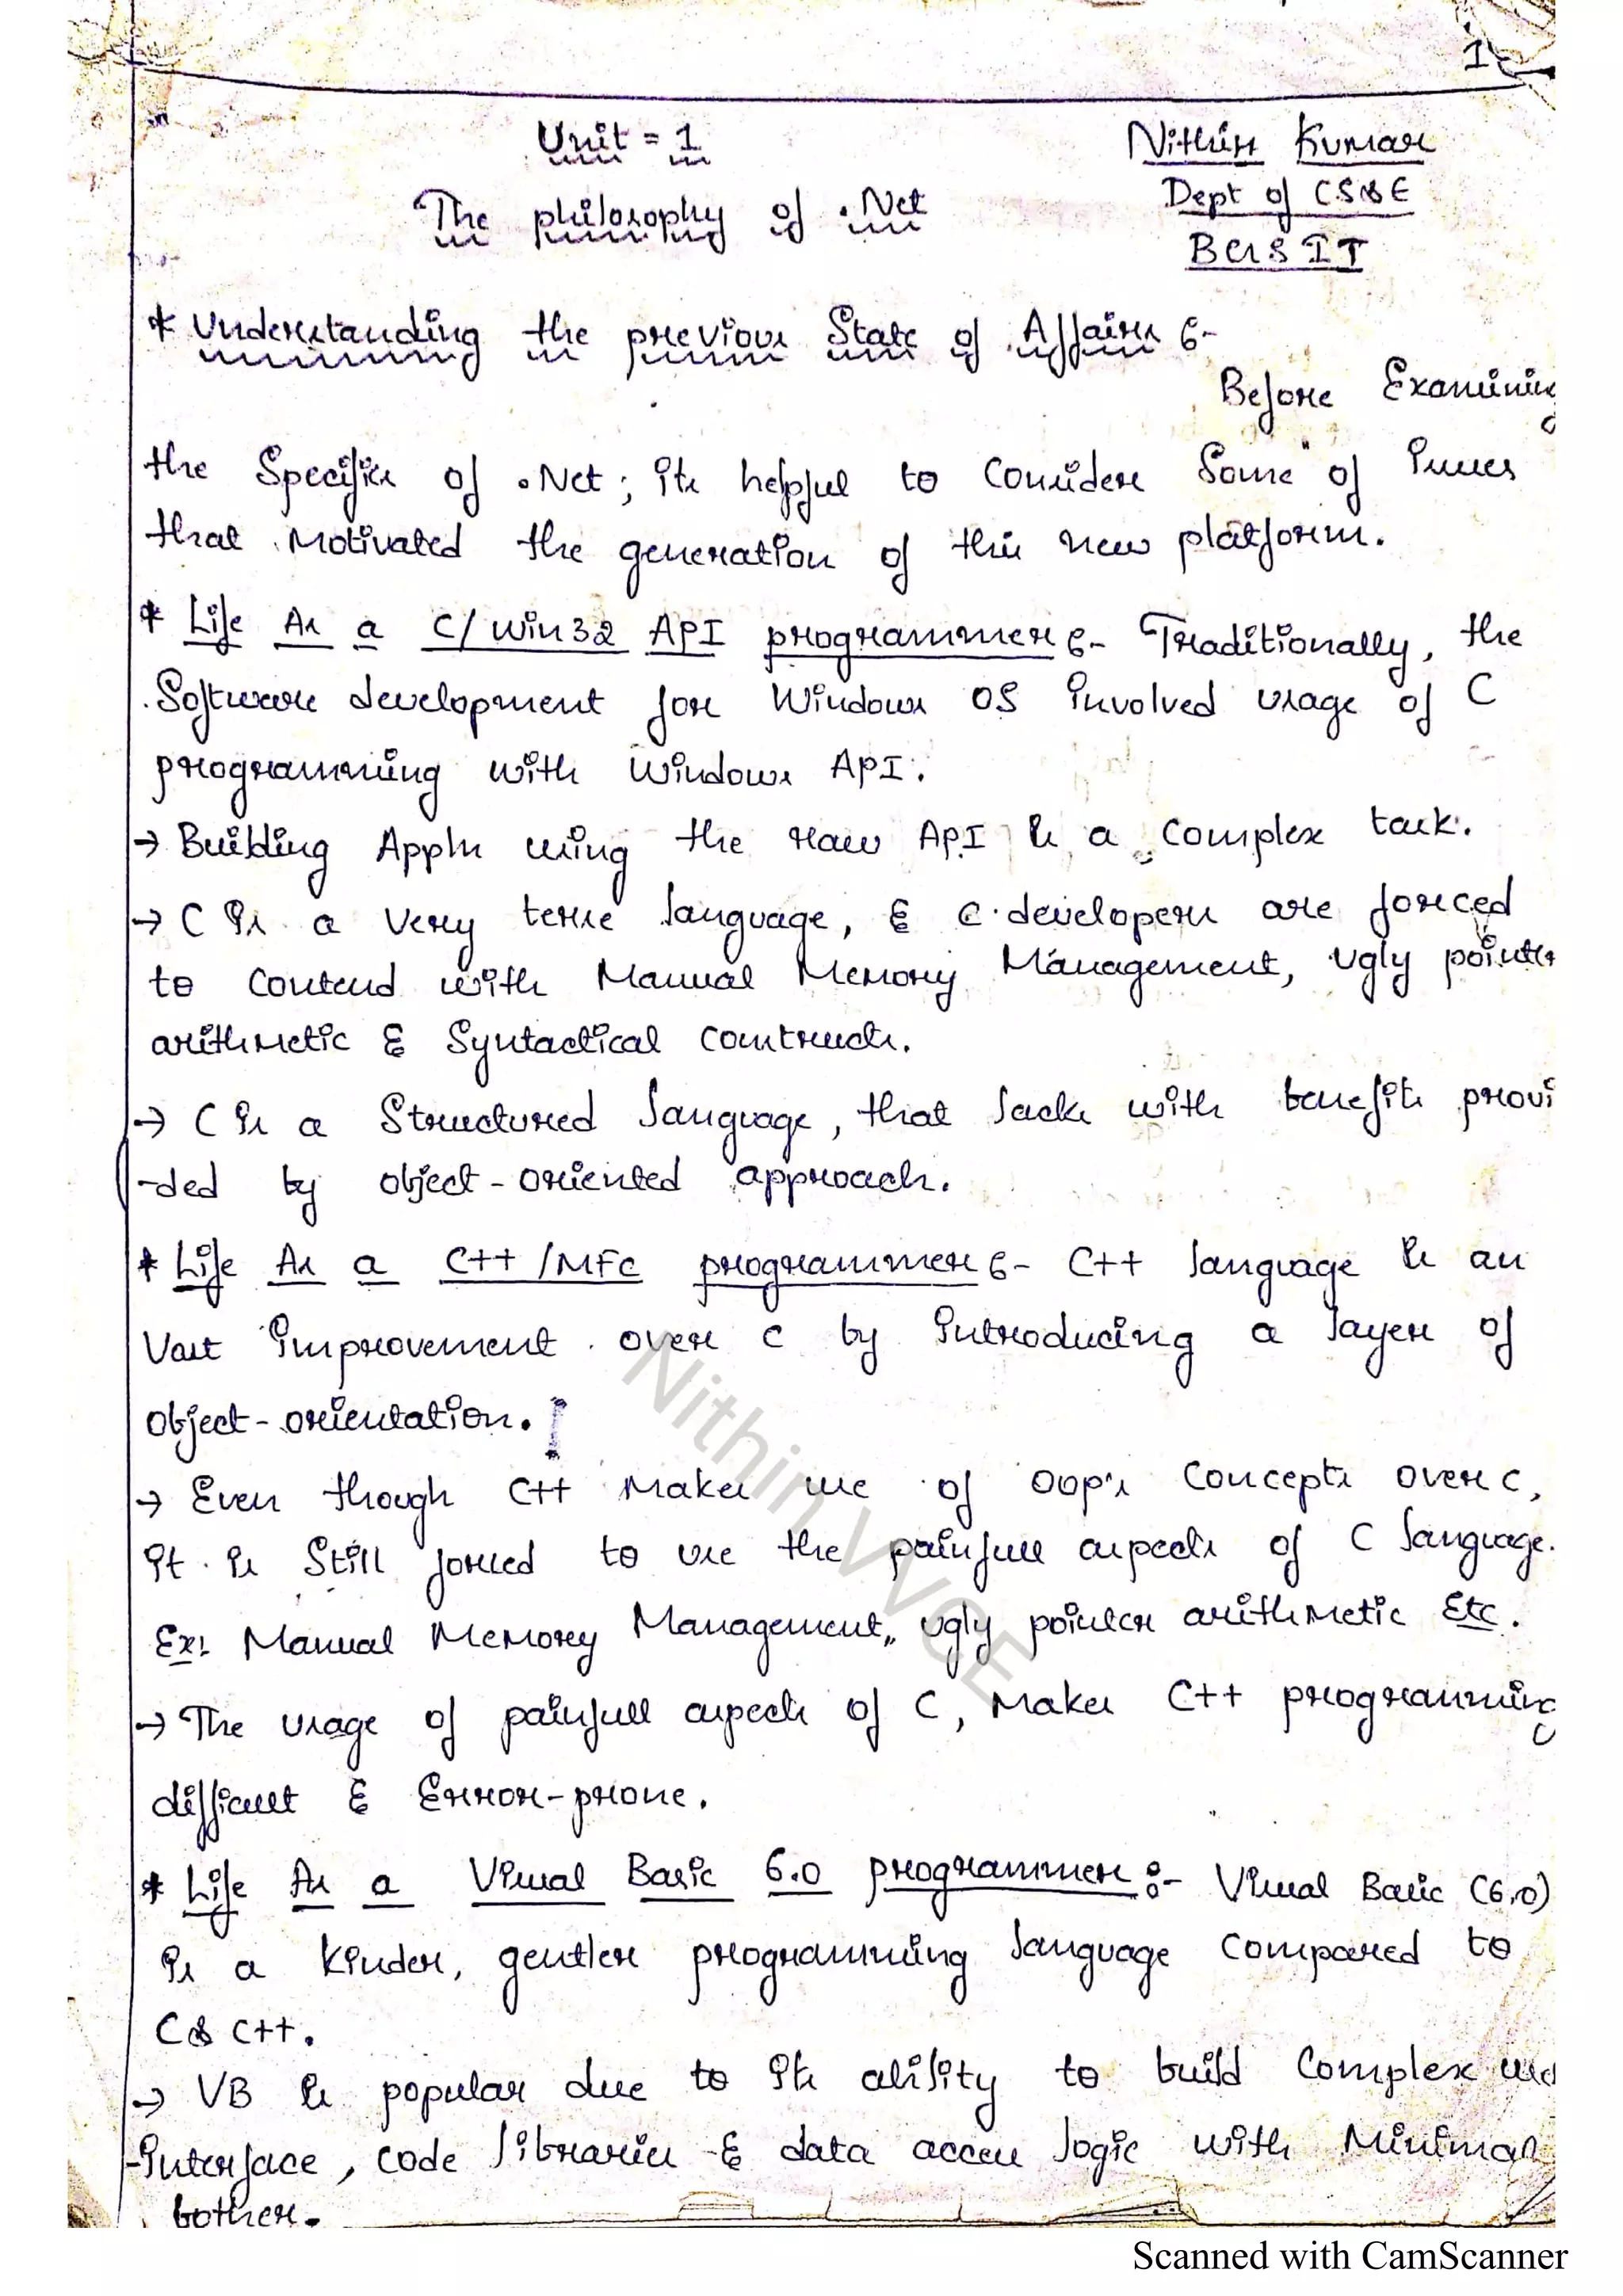 1
Unit = 1
Nithin Kumar
The philosophy of .Net
Dept of CS&E
BGSIT
* Understanding the previous State of Affairs :-
Before Examining
the Specifics of .Net; its helpful to Consider Some of issues
that Motivated the generation of this new platform.
* Life As a C/Win32 API programmer :- Traditionally, the
Software development for Windows OS involved usage of C
programming with Windows API.
→ Building Appln using the raw API is a complex task.
→ C is a very terse language, & C developers are forced
to Contend with Manual Memory Management, ugly pointer
arithmetic & Syntactical constructs.
→ C is a Structured language, that lacks with benefits provi
-ded by object-oriented approach.
* Life As a C++/MFC programmer :- C++ language is an
Vast improvement over C by introducing a layer of
object-orientation.
→ Even though C++ Makes use of OOP's Concepts over C,
it is Still forced to use the painfull aspects of C language.
Ex: Manual Memory Management, ugly pointer arithmetic Etc.
→ The usage of painfull aspects of C, Makes C++ programming
difficult & Error-prone.
* Life As a Visual Basic 6.0 programmer :- Visual Basic (6.0)
is a kinder, gentler programming language compared to
C & C++.
→ VB is popular due to its ability to build Complex user
-interface, code libraries & data access logic with Minimal
bother.
Nithin VVCE
Scanned with CamScanner